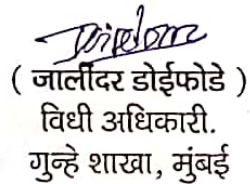 ( जालींदर डोईफोडे )
विधी अधिकारी.
गुन्हे शाखा, मुंबई